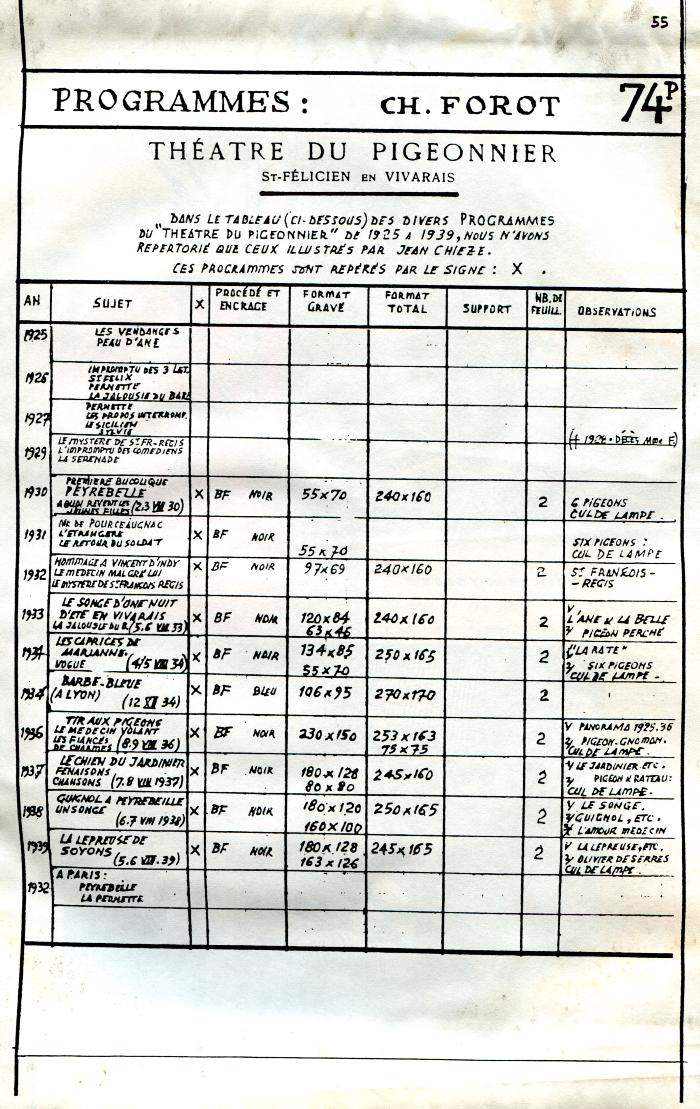 55
PROGRAMMES: CH. FOROT 74P
THÉATRE DU PIGEONNIER
ST-FÉLICIEN EN VIVARAIS
DANS LE TABLEAU (CI-DESSOUS) DES DIVERS PROGRAMMES
DU "THEATRE DU PIGEONNIER" DE 1925 A 1939, NOUS N'AVONS
REPERTORIÉ QUE CEUX ILLUSTRÉS PAR JEAN CHIEZE.
CES PROGRAMMES SONT REPÉRÉS PAR LE SIGNE: X .
AN SUJET X PROCÉDÉ ET ENCRAGE FORMAT GRAVÉ FORMAT TOTAL SUPPORT NB. DE FEUILL. OBSERVATIONS
1925 LES VENDANGES
PEAU D'ANE
1926 IMPROMPTU DES 3 LET.
ST FELIX
PERNETTE
LA JALOUSIE DU BAR
1927 PERNETTE
LES PROPOS INTERROMP.
LE SICILIEN
SYLVIE
1929 LE MYSTERE DE ST FR-REGIS
L'IMPROMPTU DES COMEDIENS
LA SERENADE
(+ 1928 . DÉCÈS Mme F.)
1930 PREMIERE BUCOLIQUE
PEYREBELLE
A QUOI REVENT LES
JEUNES FILLES (2.3 VIII 30)
X BF NOIR 55x70 240x160 2 6 PIGEONS
CUL DE LAMPE.
1931 Mr DE POURCEAUGNAC
L'ETRANGERE
LE RETOUR DU SOLDAT
X BF NOIR 55x70 SIX PIGEONS:
CUL DE LAMPE
1932 HOMMAGE A VINCENT D'INDY
LE MEDECIN MALGRÉ LUI
LE MYSTERE DE ST FRANÇOIS REGIS
X BF NOIR 97x69 240x160 2 ST FRANÇOIS-
-REGIS
1933 LE SONGE D'UNE NUIT
D'ÉTÉ EN VIVARAIS
LA JALOUSIE DU B. (5.6 VIII 33)
X BF NOIR 120x84
63x46
240x160 2 L'ANE & LA BELLE
PIGEON PERCHÉ
1934 LES CAPRICES DE
MARIANNE.
VOGUE (4/5 VIII 34)
X BF NOIR 134x85
55x70
250x165 2 "LA RATE"
SIX PIGEONS
CUL DE LAMPE.
1934 BARBE-BLEUE
(A LYON) (12 XI 34)
X BF BLEU 106x95 270x170 2
1936 TIR AUX PIGEONS
LE MEDECIN VOLANT
LES FIANCÉS
DE CHARMES (8.9 VIII 36)
X BF NOIR 230x150 253x163
75x75
2 V PANORAMA 1925.36
PIGEON-GNOMON.
CUL DE LAMPE.
1937 LE CHIEN DU JARDINIER
FENAISONS
CHANSONS (7.8 VIII 1937)
X BF NOIR 180x128
80x80
245x160 2 V LE JARDINIER ETC.
PIGEON & RATEAU:
CUL DE LAMPE.
1938 GUIGNOL A PEYREBEILLE
UN SONGE (6.7 VIII 1938)
X BF NOIR 180x120
160x100
250x165 2 V LE SONGE.
GUIGNOL, ETC.
L'AMOUR MEDECIN
1939 LA LEPREUSE DE
SOYONS (5.6 VIII.39)
X BF NOIR 180x128
163x126
245x165 2 V LA LEPREUSE, ETC.
OLIVIER DE SERRES
CUL DE LAMPE.
1932 A PARIS:
PEYREBELLE
LA PERNETTE